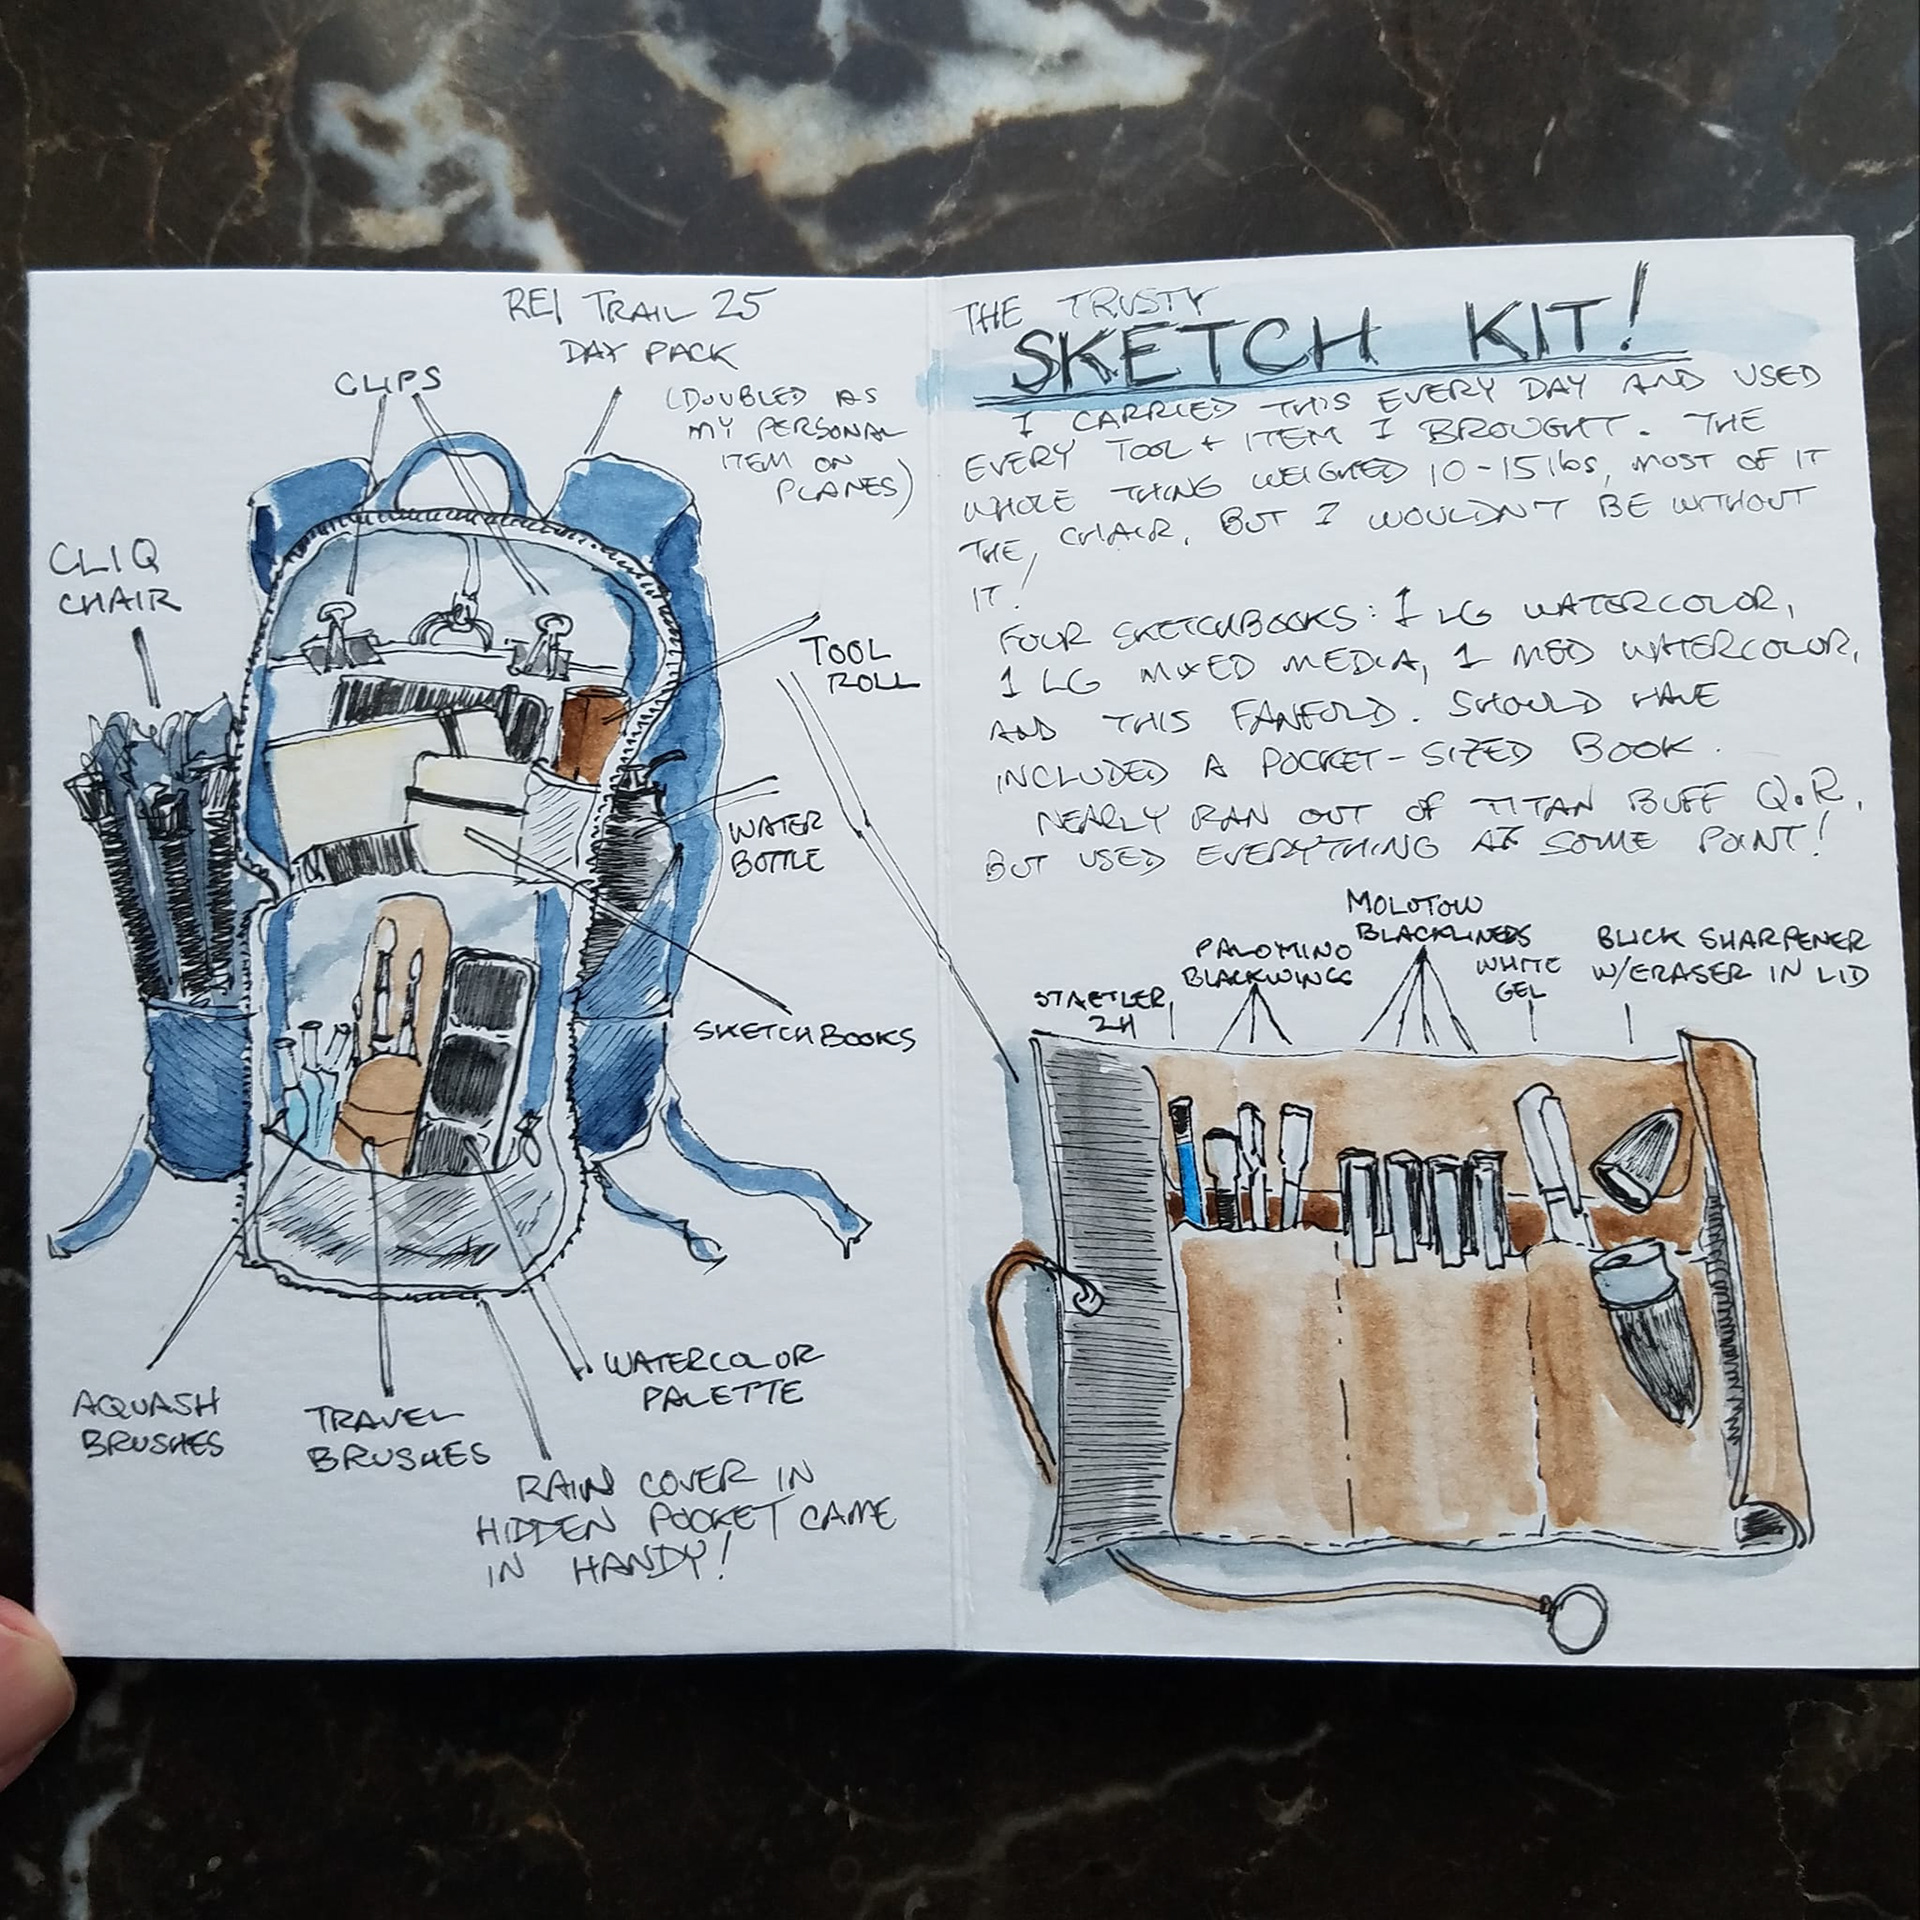 REI TRAIL 25
DAY PACK
(DOUBLED AS
MY PERSONAL
ITEM ON
PLANES)
CLIPS
CLIQ
CHAIR
TOOL
ROLL
WATER
BOTTLE
SKETCHBOOKS
AQUASH
BRUSHES
TRAVEL
BRUSHES
WATERCOLOR
PALETTE
RAIN COVER IN
HIDDEN POCKET CAME
IN HANDY!
THE TRUSTY
SKETCH KIT!
I CARRIED THIS EVERY DAY AND USED
EVERY TOOL + ITEM I BROUGHT. THE
WHOLE THING WEIGHED 10-15 lbs, MOST OF IT
THE CHAIR, BUT I WOULDN'T BE WITHOUT
IT!
FOUR SKETCHBOOKS: 1 LG WATERCOLOR,
1 LG MIXED MEDIA, 1 MED WATERCOLOR,
AND THIS FANFOLD. SHOULD HAVE
INCLUDED A POCKET-SIZED BOOK.
NEARLY RAN OUT OF TITAN BUFF Q.R,
BUT USED EVERYTHING AT SOME POINT!
STAETLER
2H
PALOMINO
BLACKWINGS
MOLOTOW
BLACKLINERS
WHITE
GEL
BLICK SHARPENER
W/ERASER IN LID